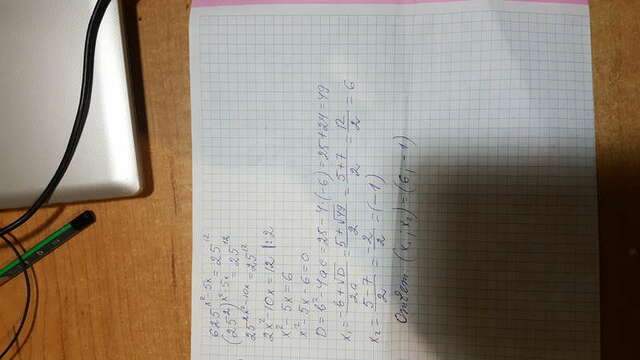 625^(x²-5x) = 25^12
(25²)^(x²-5x) = 25^12
25^(2x²-10x) = 25^12
2x²-10x = 12 |:2
x²-5x = 6
x²-5x-6=0
D=b²-4ac=25-4·(-6)=25+24=49
x₁ = (-b+√D)/2a = (5+√49)/2 = (5+7)/2 = 12/2 = 6
x₂ = (5-7)/2 = -2/2 = (-1)
Ответ (x₁; x₂) = (6; -1)